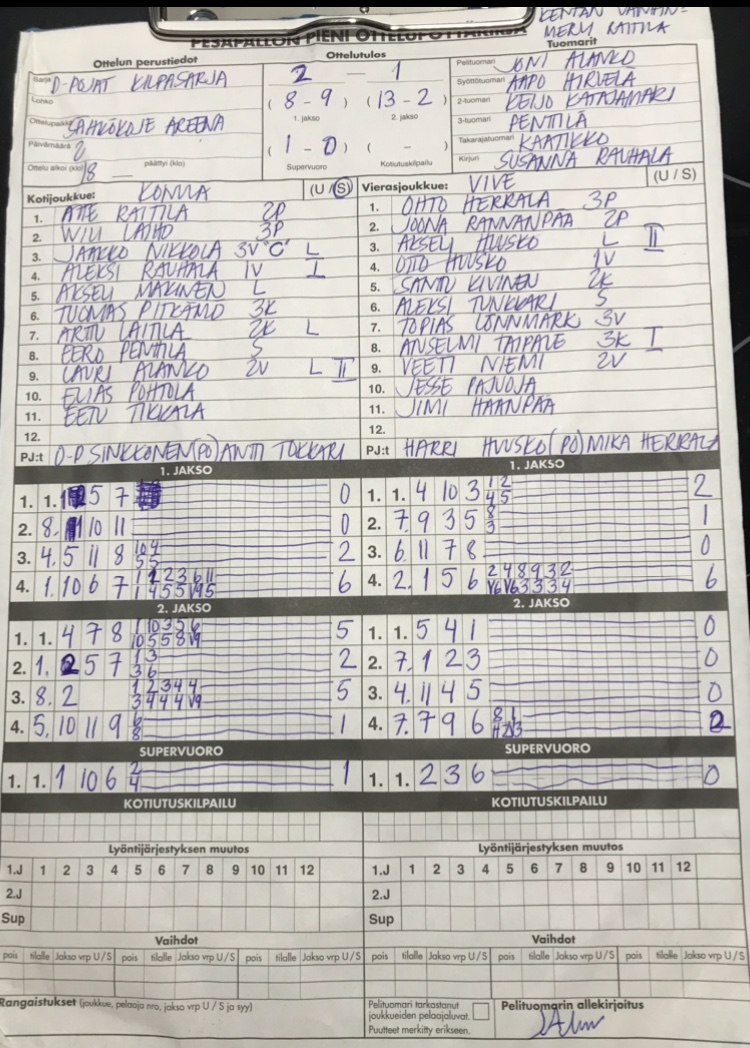 KENTÄN VANHIN-
MERU RAITILA
PESÄPALLON PIENI OTTELUPÖYTÄKIRJA
Ottelun perustiedot
Ottelutulos
Tuomarit
Sarja D-POJAT KILPASARJA
2 — 1
Pelituomari JONI ALANKO
Lohko
( 8 - 9 ) ( 13 - 2 )
Syöttötuomari AAPO HIRVELÄ
1. jakso 2. jakso
2-tuomari KEIJO KATAJAMÄKI
Ottelupaikka SÄHKÖKOJE AREENA
3-tuomari PENTILÄ
Päivämäärä
( 1 - 0 ) ( - )
Takarajatuomari KAATIKKO
Ottelu alkoi (klo) 18 päättyi (klo)
Supervuoro Kotiutuskilpailu
Kirjuri SUSANNA RAUHALA
Kotijoukkue: KONNA (U / S)
Vierasjoukkue: VIVE (U / S)
1. ATTE RAITILA 2P
1. OHTO HERRALA 3P
2. WILI LAIHO 3P
2. JOONA RANNANPÄÄ 2P
3. JAAKKO NIKKOLA 3V "C" L
3. AKSELI HUUSKO L II
4. ALEKSI RAUHALA 1V I
4. OTTO HUUSKO 1V
5. AKSELI MÄKINEN L
5. SANTU KIVINEN 2K
6. TUOMAS PITKÄMÖ 3K
6. ALEKSI TUNKKARI S
7. ARTTU LAITILA 2K L
7. TOPIAS LÖNNMARK 3V
8. EERO PENTTILÄ S
8. ANSELMI TAIPALE 3K I
9. LAURI ALANKO 2V L II
9. VEETI NIEMI 2V
10. ELIAS POHTOLA
10. JESSE PAJUOJA
11. EETU TIKKALA
11. JIMI HAANPÄÄ
12.
12.
PJ:t O-P SINKKONEN(PO) ANTTI TOKKARI
PJ:t HARRI HUUSKO(PO) MIKA HERRALA
1. JAKSO
1. JAKSO
1. 1. 5 7 0
1. 1. 4 10 3 1 2 2
4 5
2. 8. 10 11 0
2. 7. 9 3 5 8 1
3
3. 4. 5 11 8 10 4 2
5 5
3. 6. 11 7 8 0
4. 1. 10 6 7 1 1 2 3 6 11 6
4. 2. 1 5 6 2 4 8 9 3 2 6
2. JAKSO
2. JAKSO
1. 1. 4 7 8 1 10 3 5 6 5
1. 1. 5 4 1 0
2. 1. 2 5 7 1 3 2
3 6
2. 7. 1 2 3 0
3. 8. 2 1 2 3 4 4 5
3. 4. 11 4 5 0
4. 5. 10 11 9 6 1
8
4. 7. 7 9 6 8 1 2
SUPERVUORO
SUPERVUORO
1. 1. 1 10 6 2 1
4
1. 1. 2 3 6 0
KOTIUTUSKILPAILU
KOTIUTUSKILPAILU
Lyöntijärjestyksen muutos
Lyöntijärjestyksen muutos
1.J 1 2 3 4 5 6 7 8 9 10 11 12
1.J 1 2 3 4 5 6 7 8 9 10 11 12
2.J
2.J
Sup
Sup
Vaihdot
Vaihdot
pois tilalle Jakso vrp U/S pois tilalle Jakso vrp U/S pois tilalle Jakso vrp U/S
pois tilalle Jakso vrp U/S pois tilalle Jakso vrp U/S pois tilalle Jakso vrp U/S
Rangaistukset (joukkue, pelaaja nro, jakso vrp U / S ja syy)
Pelituomari tarkastanut
joukkueiden pelaajaluvat.
Puutteet merkitty erikseen.
Pelituomarin allekirjoitus